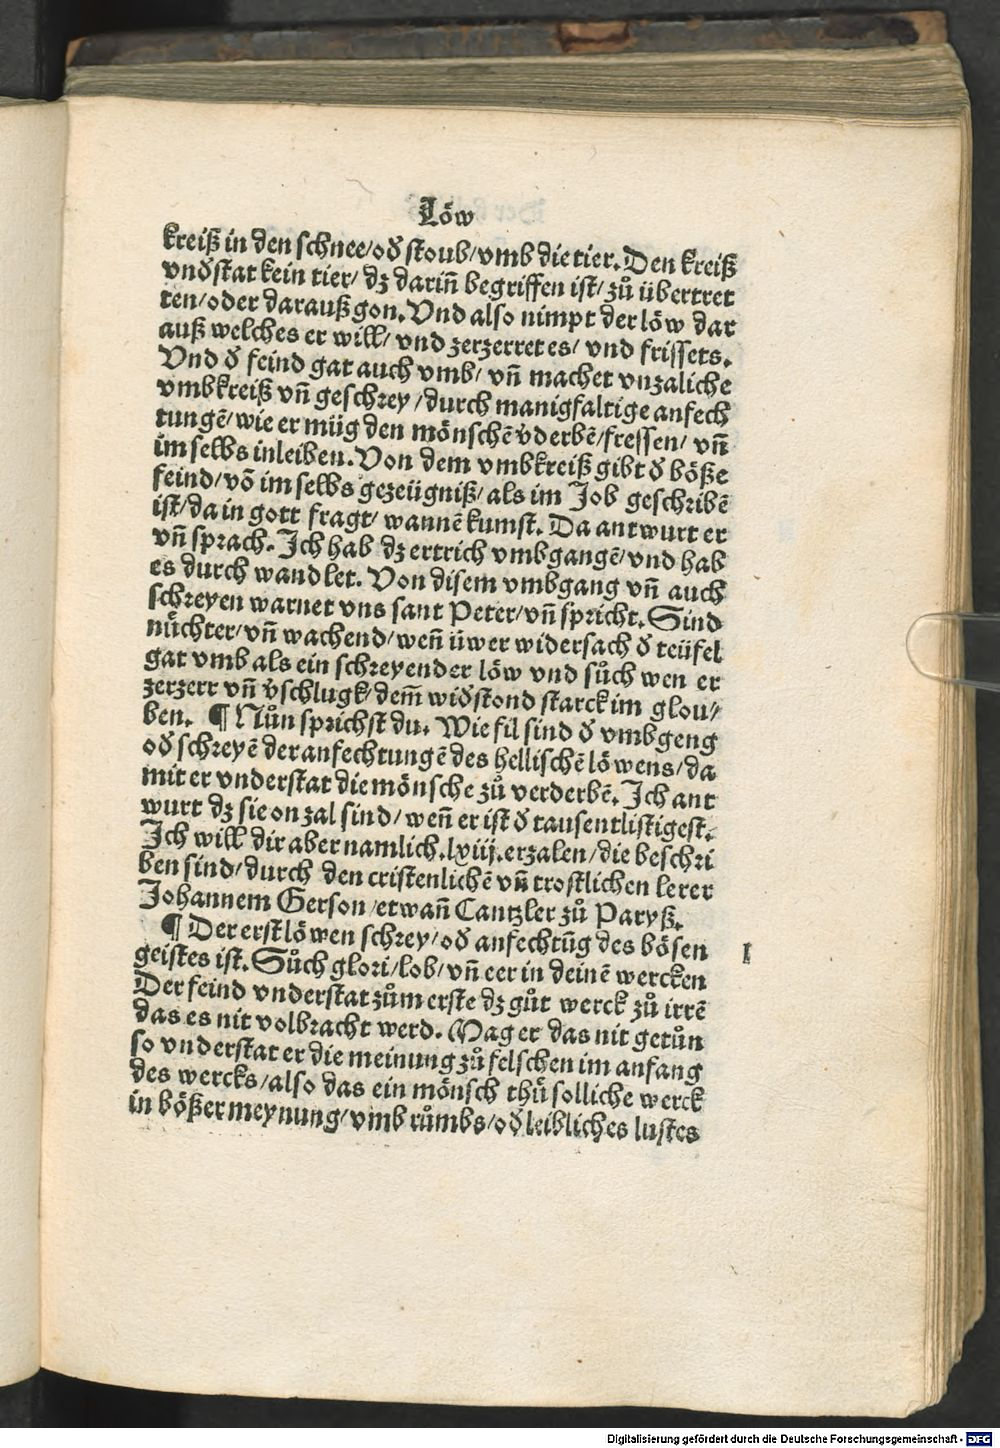 Löw
kreiß in den schnee/od̕ stoub/vmb die tier. Den kreiß
vnd̕stat kein tier/ dz darin̄ begriffen ist/ zů übertret
ten/oder darauß gon. Vnd also nimpt der löw dar
auß welches er will/ vnd zerzerret es/ vnd frissets.
Vnd d̕ feind gat auch vmb/ vn̄ machet vnzaliche
vmbkreiß vn̄ geschrey/durch manigfaltige anfech
tungē/wie er müg den mönschē v̕derbē/fressen/ vn̄
im selbs inleiben. Von dem vmbkreiß gibt d̕ böße
feind/vō im selbs gezeügniß/ als im Job geschribē
ist/da in gott fragt/ wannē kumst. Da antwurt er
vn̄ sprach. Ich hab dz ertrich vmbgangē/vnd hab
es durch wandlet. Von disem vmbgang vn̄ auch
schreyen warnet vns sant Peter/vn̄ spricht. Sind
nüchter/vn̄ wachend/wen̄ üwer widersach d̕ teüfel
gat vmb als ein schreyender löw vnd sůch wen er
zerzerr vn̄ v̕schlugk/dem̄ wid̕stond starck im glou/
ben. ¶ Nůn sprichst du. Wie fil sind d̕ vmbgeng
od̕ schreyē der anfechtungē des hellischē löwens/da
mit er vnderstat die mönsche zů verderbē. Ich ant
wurt dz sie on zal sind/wen̄ er ist d̕ tausentlistigest.
Ich will dir aber namlich .lxiij. erzalen/die beschri
ben sind/durch den cristenlichē vn̄ trostlichen lerer
Johannem Gerson/etwan̄ Cantzler zů Paryß.
¶ Der erst löwen schrey/od̕ anfechtūg des bösen
I
geistes ist. Sůch glori/lob/vn̄ eer in deinē wercken
Der feind vnderstat zům erste dz gůt werck zů irrē
das es nit volbracht werd. Mag er das nit getůn
so vnderstat er die meinung zů felschen im anfang
des wercks/also das ein mönsch thů solliche werck
in bößer meynung/vmb růmbs/od̕ leibliches lustes
Digitalisierung gefördert durch die Deutsche Forschungsgemeinschaft - DFG